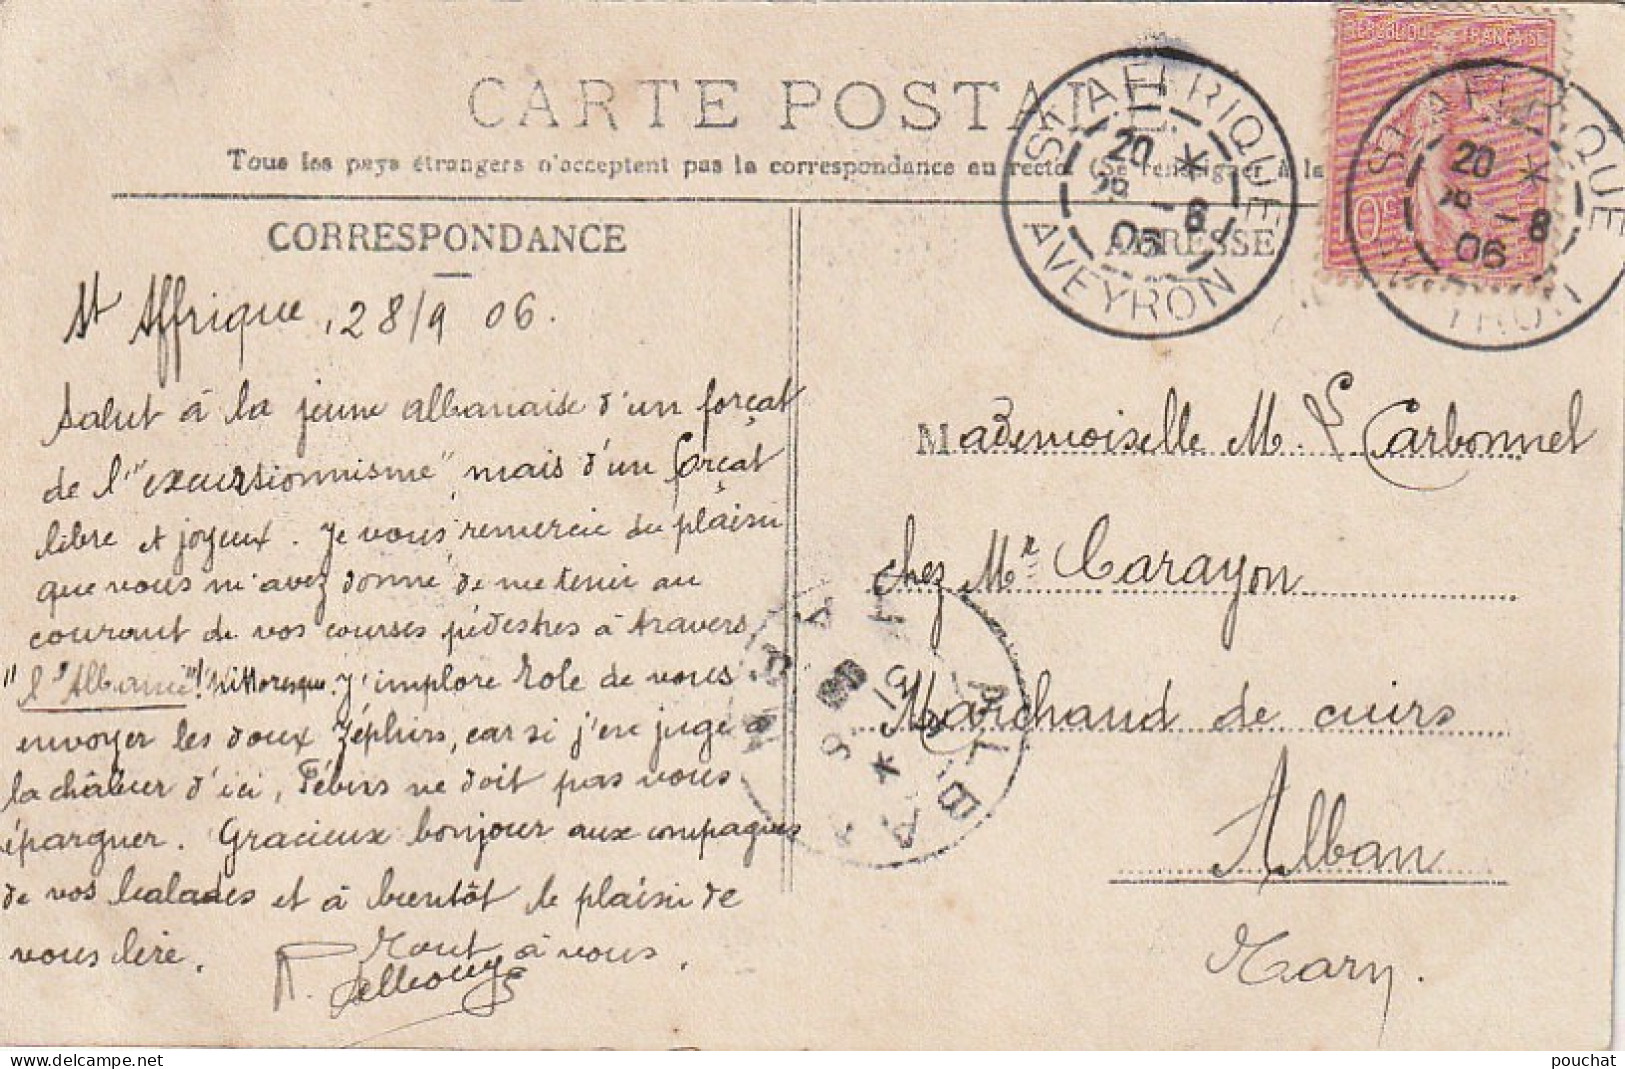 CARTE POSTALE
Tous les pays étrangers n'acceptent pas la correspondance au recto (Se renseigner à la
CORRESPONDANCE
ADRESSE
RÉPUBLIQUE FRANÇAISE
10c
ST AFFRIQUE
20 *
28 - 8
06
AVEYRON
ST AFFRIQUE
20 *
28 - 8
06
AVEYRON
St Affrique, 28/9 06.
Salut à la jeune albanaise d'un forçat
de l'"excursionnisme", mais d'un forçat
libre et joyeux. Je vous remercie du plaisir
que vous m'avez donné de me tenir au
courant de vos courses pédestres à travers
"l'Albanie"! Pittoresque. J'implore Eole de vous
envoyer les doux Zéphirs, car si j'en juge à
la châleur d'ici, Fébus ne doit pas vous
épargner. Gracieux bonjour aux compagnes
de vos balades et à bientôt le plaisir de
vous lire. Tout à vous.
Mademoiselle M. L Carbonnel
chez Mr Carayon
Marchand de cuirs
Alban
Tarn.
ALBAN
pouchat